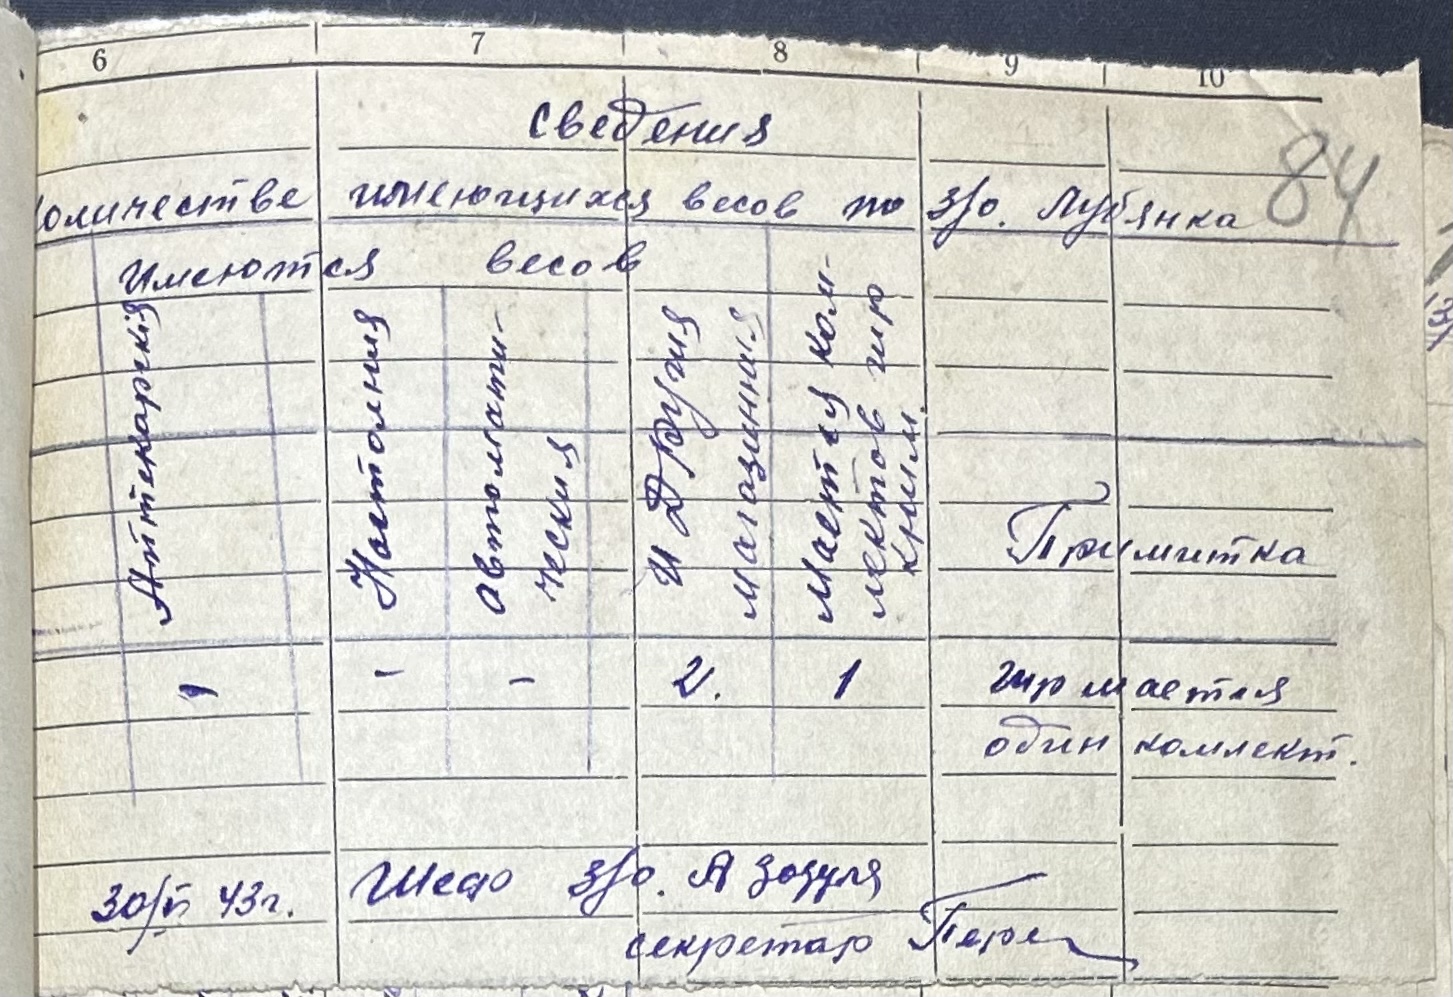 6 7 8 9 10
Сведения
количестве имеющихся весов по з/о. Лубянка
84
Имеются весов
Аптекарскія
Настолния
Автомати-
ческия
и Другия
магазинния
Мается ком-
лектов гир
к ним.
Примитка
- - - 2. 1 гир мается
один комлект.
30/ІІ 43г. Шеф з/о. А Зозуля
секретар